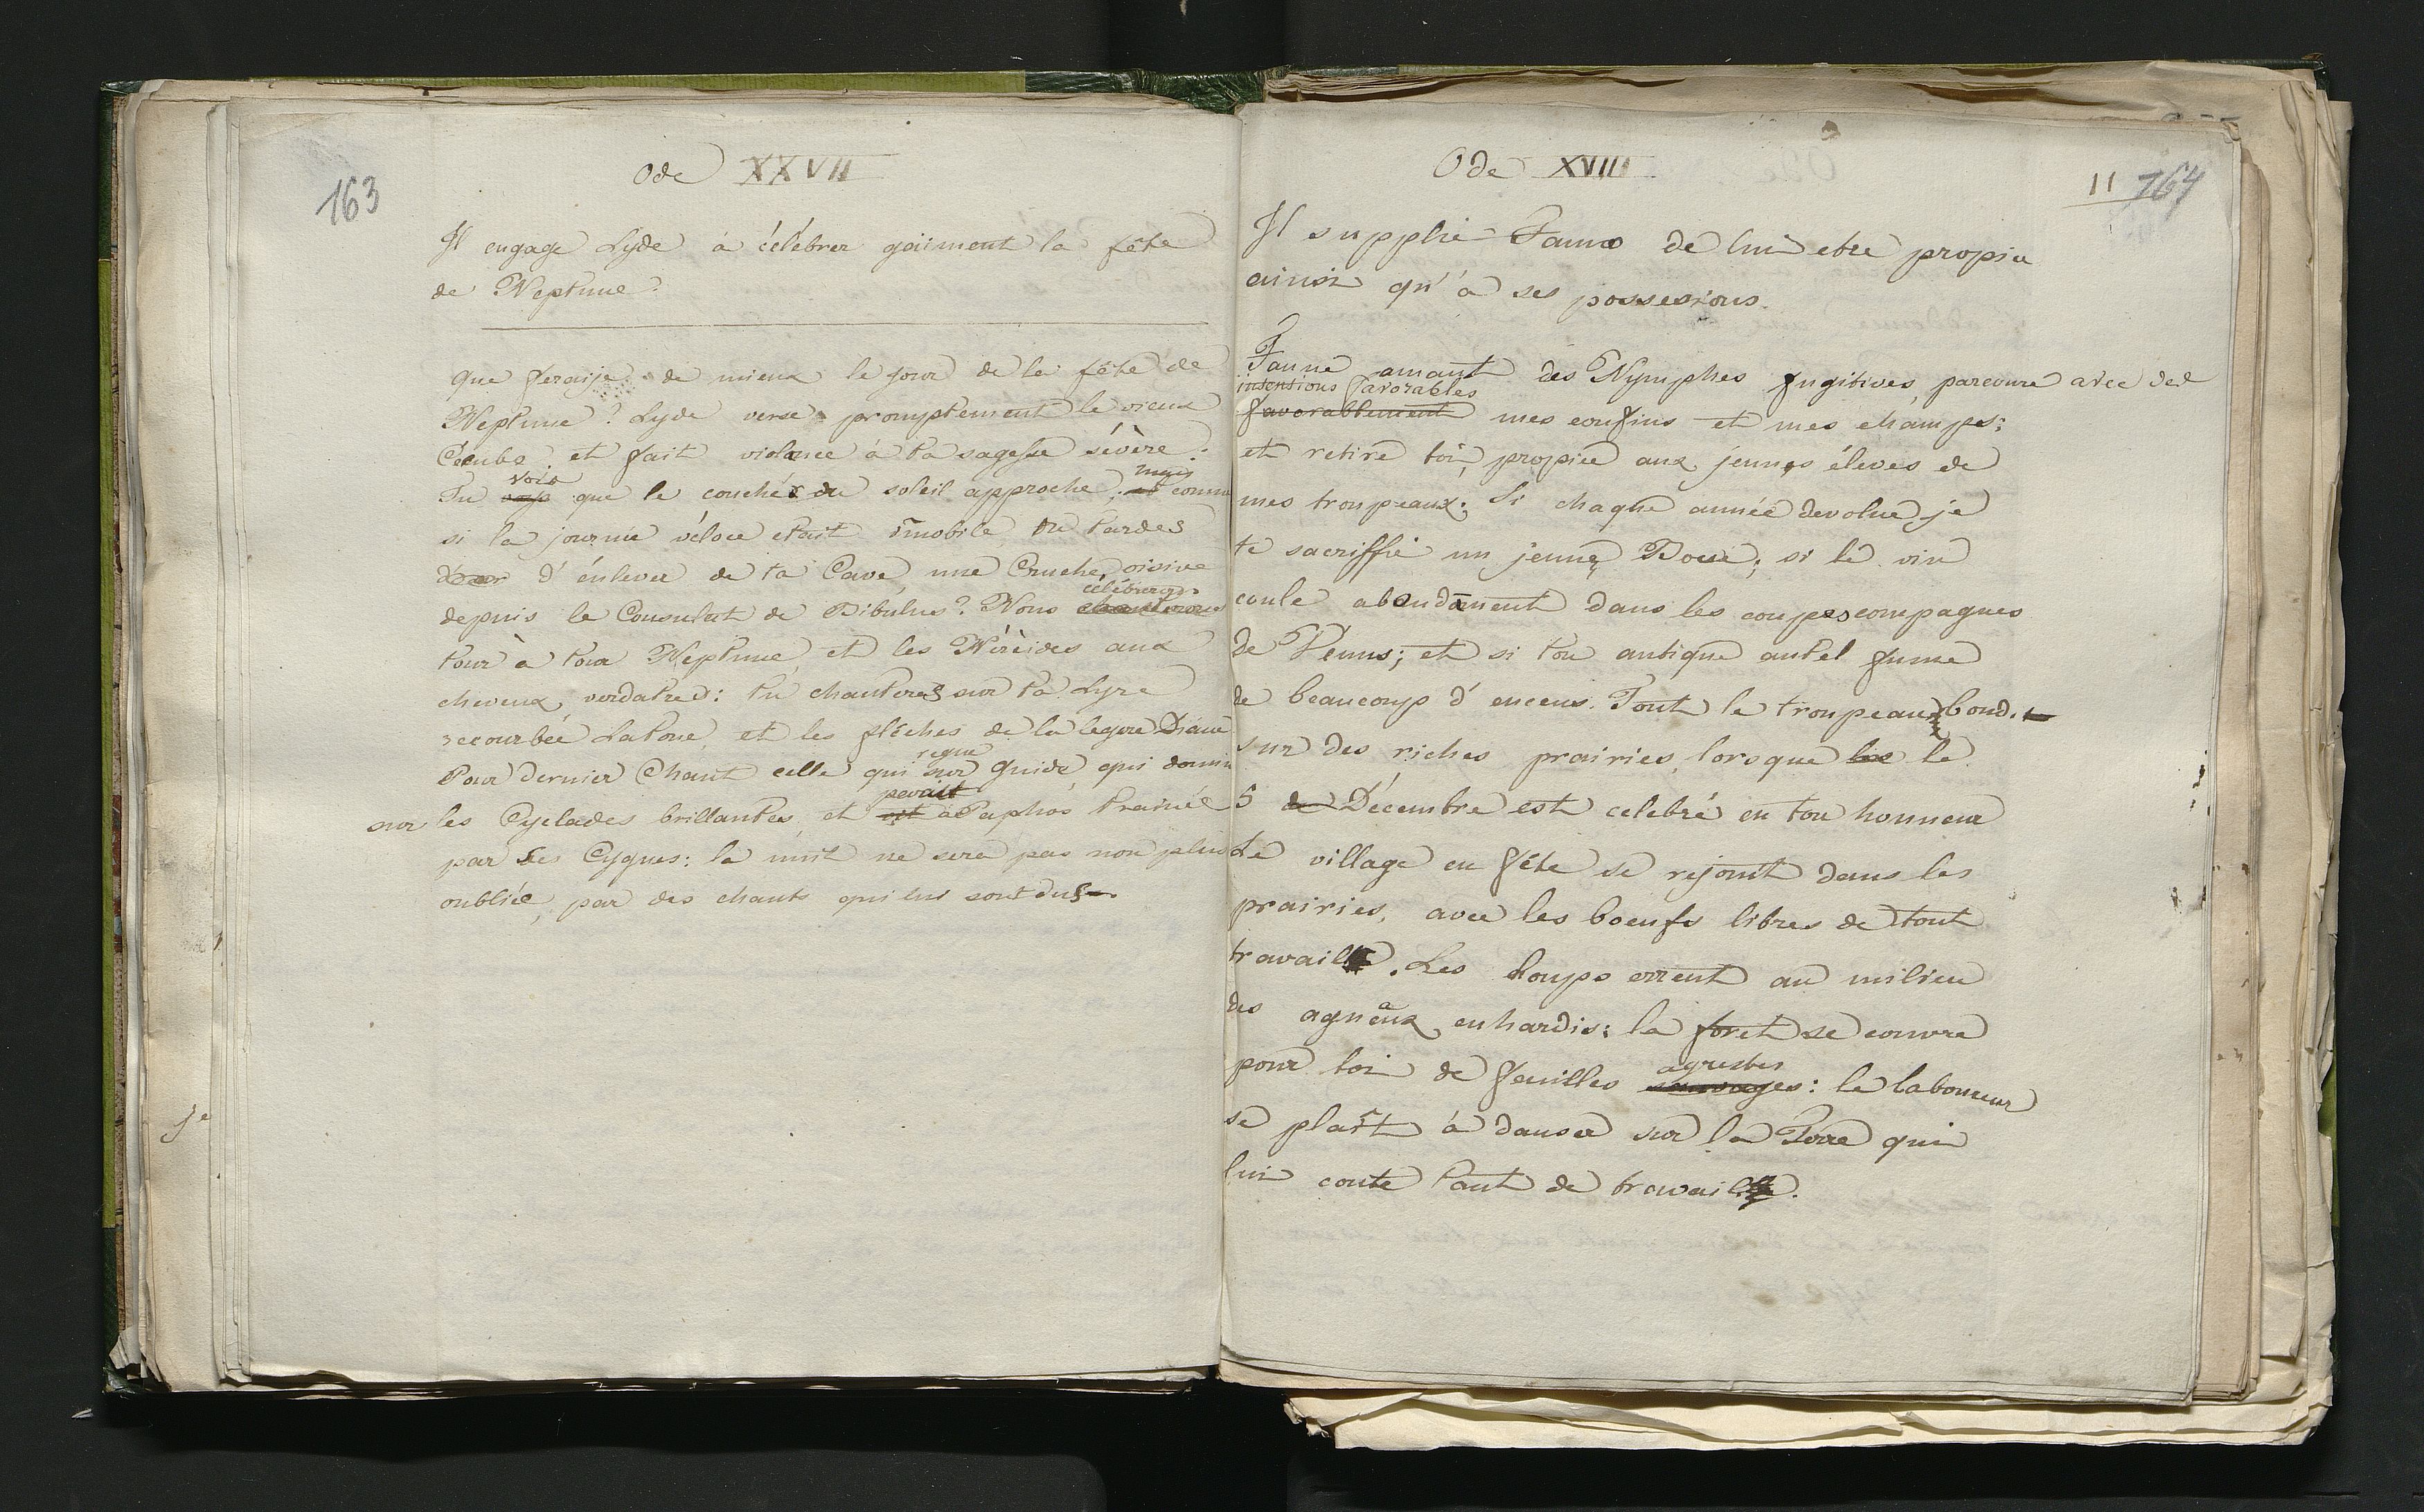 163
Ode XXVII
Il engage Lyde à célébrer gaiment la fête
de Neptune.
Que feraije de mieux le jour de la fête de
Neptune? Lyde verse promptement le vieux
Cécube, et fait violence à ta sagesse sévère.
vois mais
Tu que le couché du soleil approche, comme
si la journée véloce etait imobile tu tardes
d'énlever de ta Cave, une Cruche oisive
célébrerons
depuis le Consulat de Bibulus? Nous chanterons
tour à tour Neptune, et les Néréides aux
cheveux verdatres: tu chanteras sur ta Lyre
recourbée Latone, et les fléches de la legere Diane
regne
Pour dernier Chant celle qui sur Gnide qui domine
sur les Cyclades brillantes, et à Paphos trainée
par des Cygnes: la nuit ne sera pas non plus
oubliée, par des chants qui lui sont dus.
je
11 164
Ode XVIII
Il supplie Faune de lui etre propice
ainsi qu'à ses possesions.
Faune amant des Nymphes fugitives, parcoure avec des
intentions favorables
favorablement mes confins et mes champs;
et retire toi, propice aux jeunes éleves de
mes troupeaux; Si chaque année devolue je
te sacriffie un jeune Bouc; si le vin
coule abondament dans les coupes compagnes
de Vénus; et si ton antique autel fume
de beaucoup d'encens. Tout le troupeau bondit
sur des riches prairies, lorsque les le
5 de Décembre est celebré en ton honneur
Le village en fête se rejouit dans les
prairies, avec les boeufs libres de tout
travail. Les loups errent au milieu
des agneaux enhardis: la foret se couvre
agrestes
pour toi de feuilles sauvages: le laboureur
se plaît à danser sur la Terre qui
lui coute tant de travail.